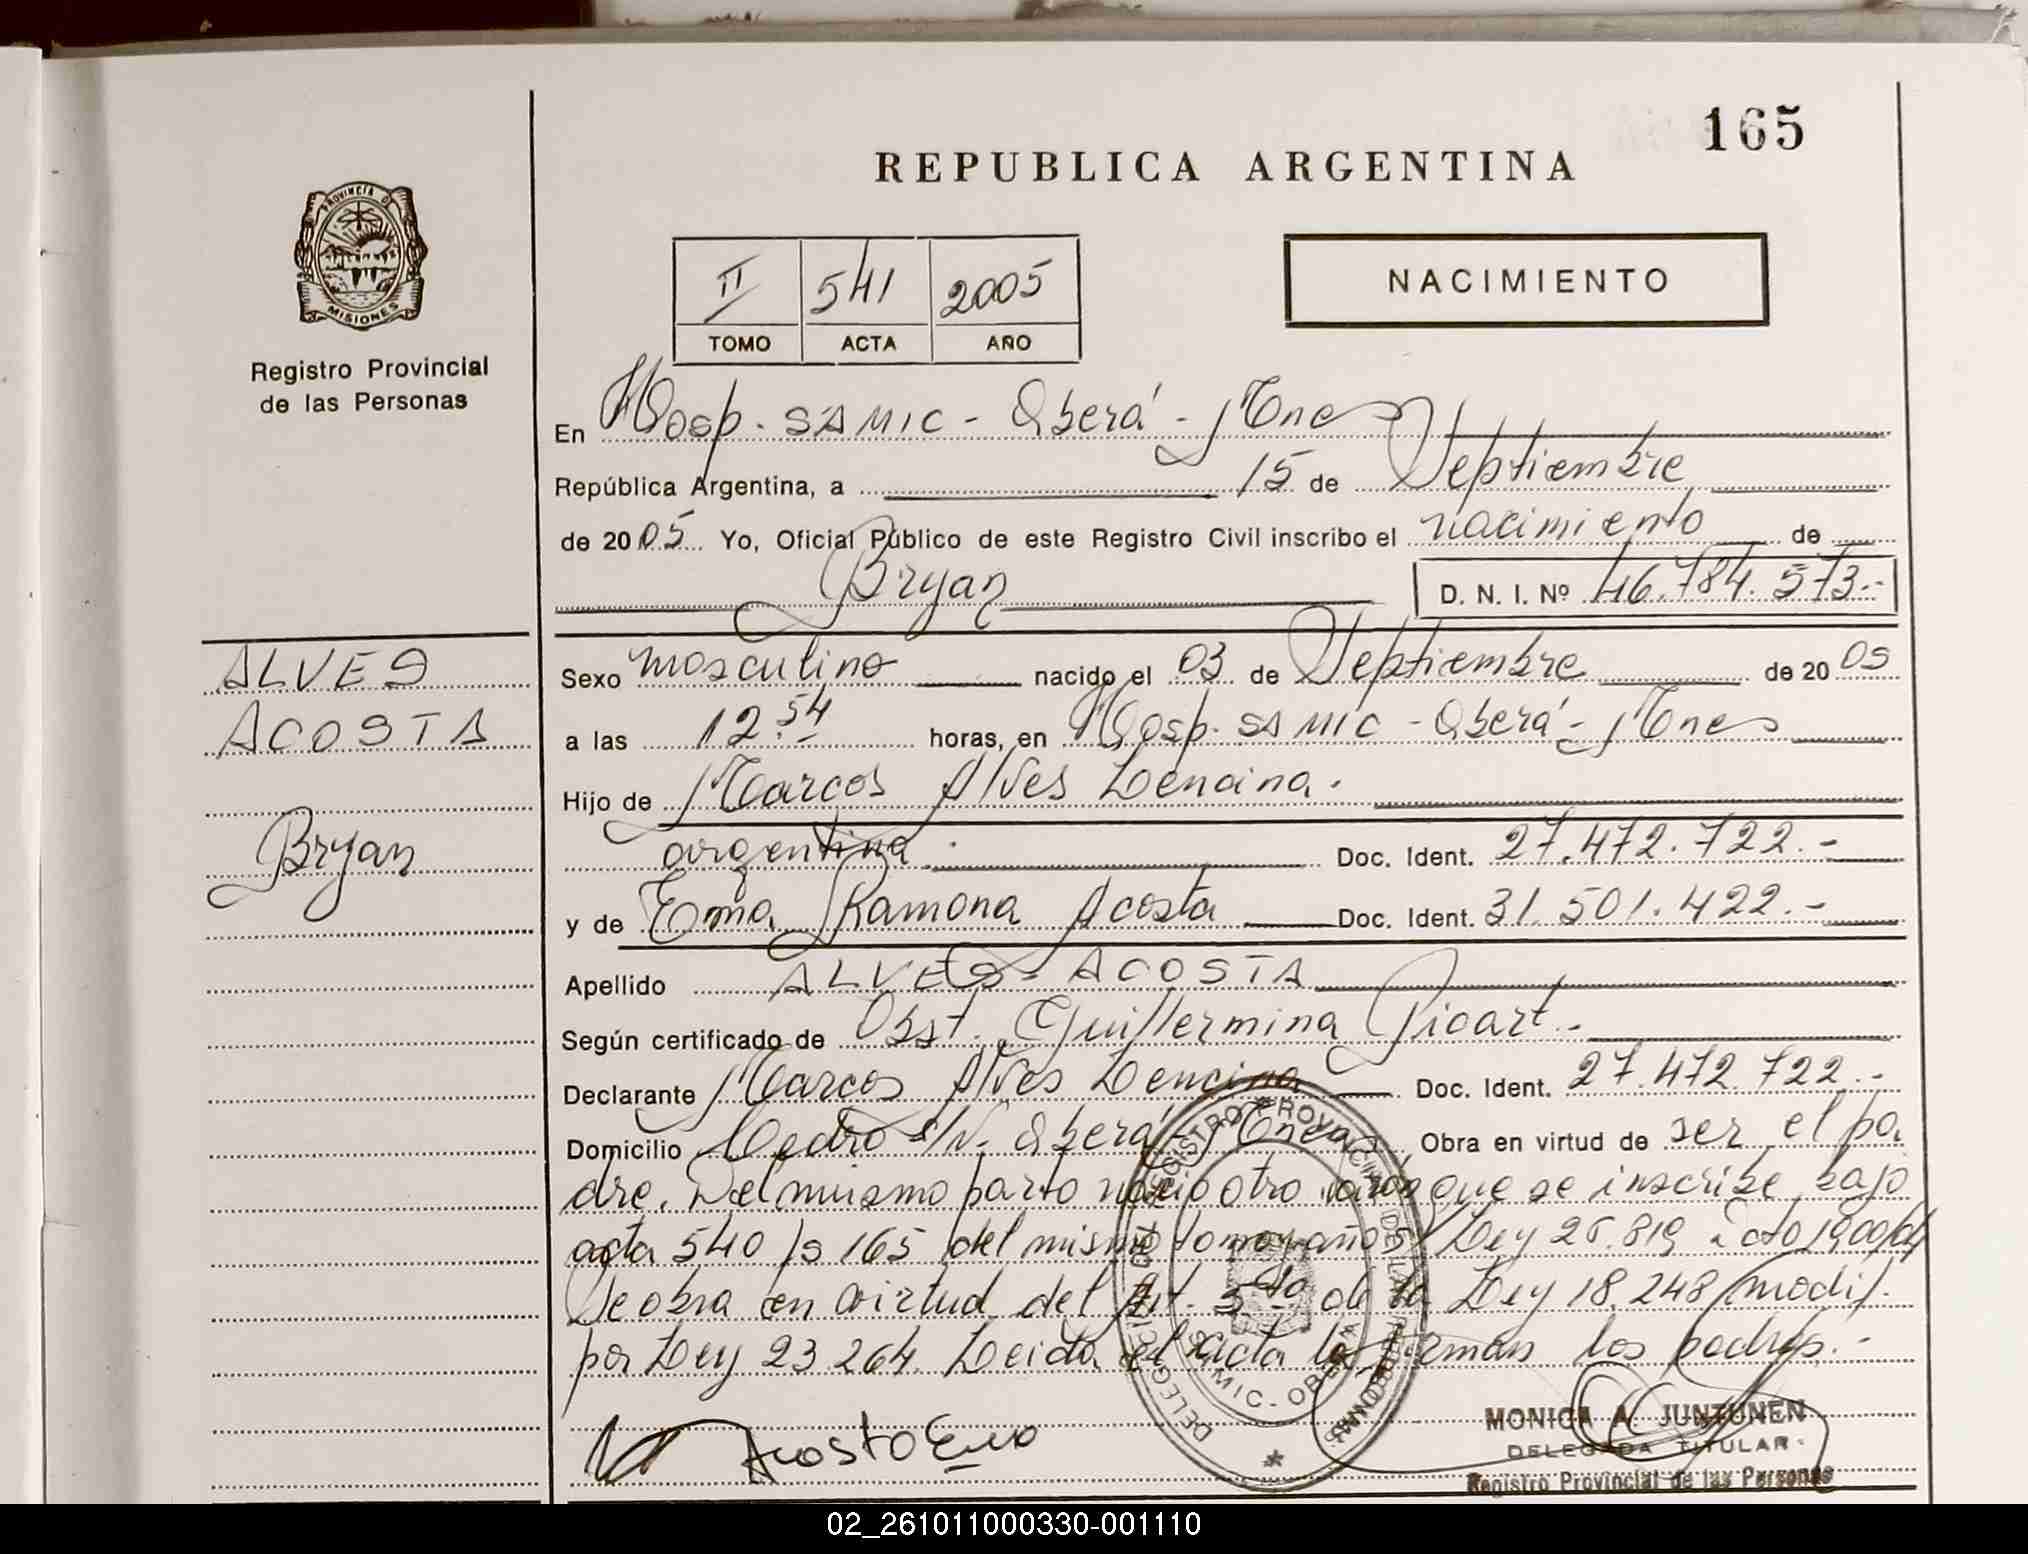 165
REPUBLICA ARGENTINA
PROVINCIA DE
MISIONES
Registro Provincial
de las Personas
II 541 2005
TOMO ACTA AÑO
NACIMIENTO
En Hosp. SAMIC - Oberá - Mnes
República Argentina, a 15 de Septiembre
de 2005 Yo, Oficial Público de este Registro Civil inscribo el nacimiento de
Bryan D. N. I. Nº 46.784.573.-
ALVES
ACOSTA
Bryan
Sexo masculino nacido el 03 de Septiembre de 2005
a las 12.54 horas, en Hosp. SAMIC - Oberá - Mnes
Hijo de Marcos Alves Lencina.
argentina. Doc. Ident. 27.472.722.-
y de Ema Ramona Acosta Doc. Ident. 31.501.422.-
Apellido ALVES - ACOSTA
Según certificado de Obst. Guillermina Picart.-
Declarante Marcos Alves Lencina Doc. Ident. 27.472.722.-
Domicilio Cedro S/N. Oberá - Mnes Obra en virtud de ser el pa
dre. Del mismo parto nació otro varón que se inscribe bajo
acta 540 fs 165 del mismo tomo y año. Ley 25.819 Dcto 1900/04
Se obra en virtud del Art. 5to de la Ley 18.248 modif.
por Ley 23.264. Leida el acta la firman los padres.-
Acosta Ema
REGISTRO PROVINCIAL DE LAS PERSONAS
DELEGACION
SAMIC - OBERA
MONICA A. JUNTUNEN
DELEGADA TITULAR
Registro Provincial de las Personas
02_261011000330-001110